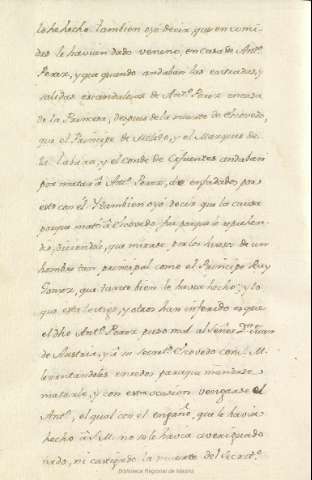 lo he hecho. tambien oyó decir, que en comi-
das le havian dado veneno, en casa de Antº.
Perez, y que quando andaban las entradas, y
salidas escandalosas de Antº. Perez en casa
de la Princesa, despues de la muerte de Escovedo,
que el Principe de Melito, y el Marques de
la Fabara, y el conde de Cifuentes andaban
por matar à Antº. Perez, de enfadados por
esto con el. Y tambien oyó decir que la causa
porque mató à Escovedo fue porque lo reprehen-
dio, diciendole, que mirase por los huesos de un
hombre tan principal como el Principe Ruy
Gomez, que tanto bien le havia hecho: y lo
que este testigo, y otros han inferido es que
el dho Antº. Perez puso mal al Señor Dn. Juan
de Austria, y à su Secretº. Escovedo con S. M.
levantandoles enredos para que mandase
matarle, y con esta ocasion vengarse el
Antº. el qual con el engaño, que le havia
hecho à S. M. no se le havia averiguado
nada, ni castigado la muerte del Secretº.
Biblioteca Regional de Madrid